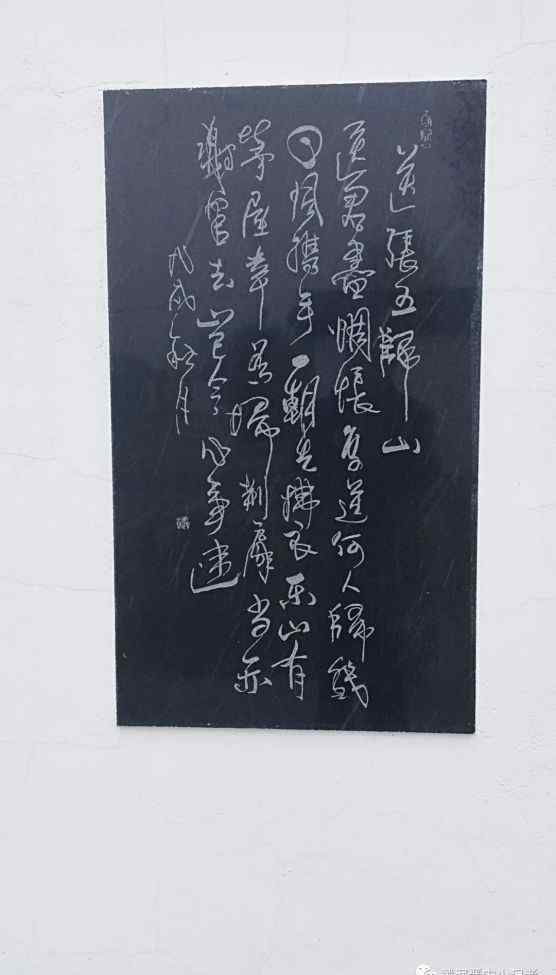 送張五歸山
送君盡惆悵復送何人歸幾
日同攜手一朝先拂衣東山有
茅屋幸為掃荊扉當亦
謝官去豈令心事違
戊戌秋月